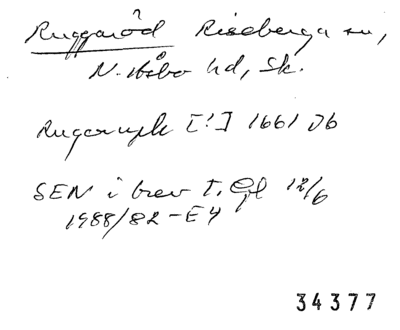 Ruggaröd Riseberga sn,
N. Åsbo hd, Sk.
[!] 1661 Jb
SEN i brev T. 12/6
1988/82-E4
34377